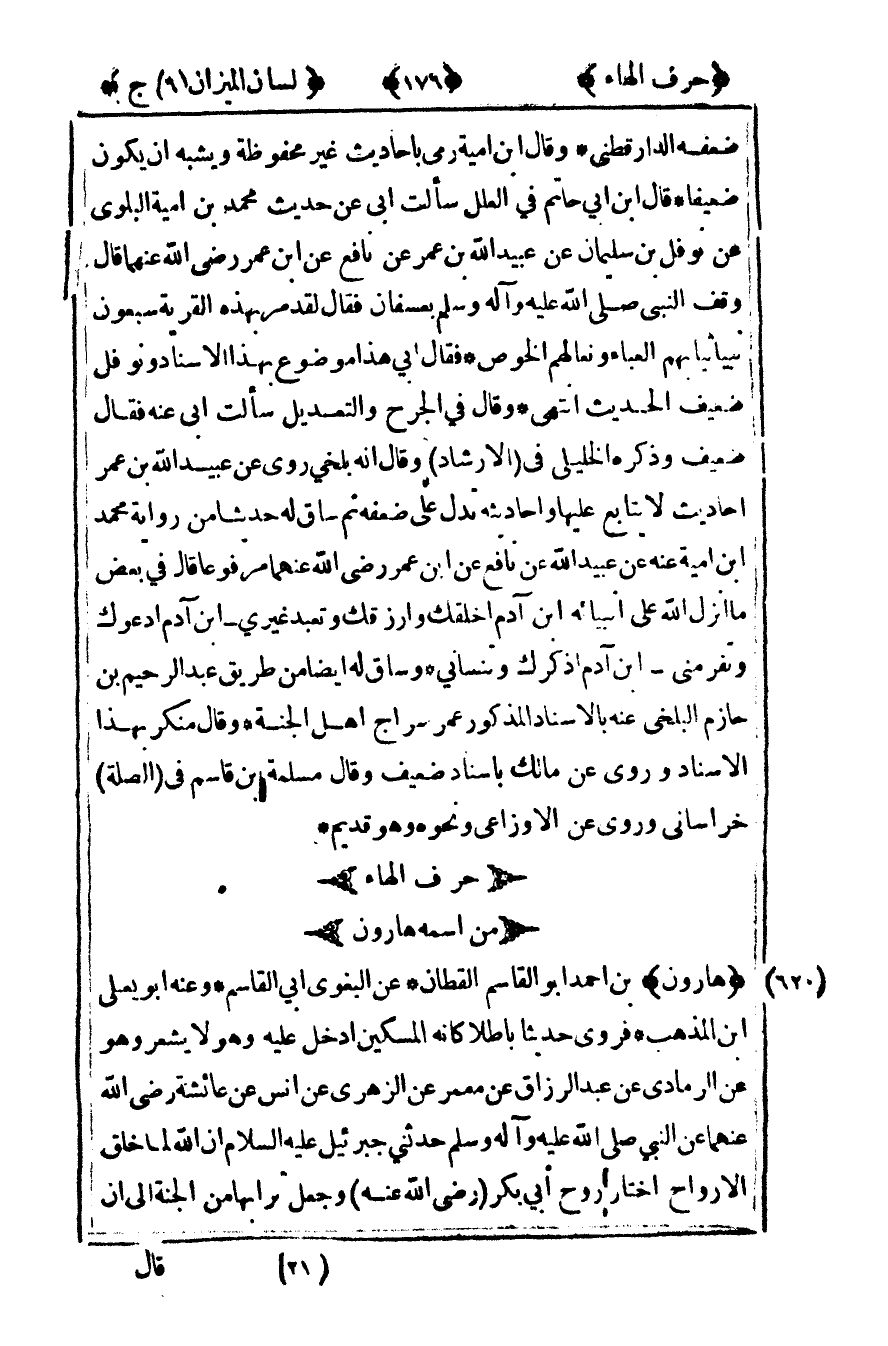 ﴿حرف الهاء﴾ ﴿١٧٩﴾ ﴿لسان الميزان (٩) ج﴾
ضعفه الدارقطني* وقال ابن امية رمى باحاديث غير محفوظة ويشبه ان يكون
ضعيفا* قال ابن ابي حاتم في العلل سألت ابى عن حديث محمد بن امية البلوى
عن نوفل بن سليمان عن عبيدالله بن عمر عن نافع عن ابن عمر رضى الله عنهما قال
وقف النبى صلى الله عليه وآله وسلم بعسفان فقال لقد مر بهذه القرية سبعون
نبيا ثيابهم العباء ونعالهم الخوص* فقال ابي هذا موضوع بهذا الاسناد ونوفل
ضعيف الحديث انتهى* وقال في الجرح والتعديل سألت ابى عنه فقال
ضعيف وذكره الخليلى فى (الارشاد) وقال انه بلخي روى عن عبيدالله بن عمر
احاديث لايتابع عليها واحاديثه تدل على ضعفه ثم ساق له حديثا من رواية محمد
ابن امية عنه عن عبيدالله عن نافع عن ابن عمر رضى الله عنهما مرفوعا قال في بعض
ما انزل الله على انبيائه ابن آدم اخلقك وارزقك وتعبد غيري - ابن آدم ادعوك
وتفر منى - ابن آدم اذكرك وتنساني* وساق له ايضا من طريق عبدالرحيم بن
حازم البلخى عنه بالاسناد المذكور عمر سراج اهل الجنة* وقال منكر بهذا
الاسناد و روى عن مالك باسناد ضعيف وقال مسلمة بن قاسم فى (الصلة)
خراسانى وروى عن الاوزاعى ونحوه وهو قديم*
﴿حرف الهاء﴾
﴿من اسمه هارون﴾
(٦٢٠) ﴿هارون﴾ بن احمد ابو القاسم القطان* عن البغوى ابي القاسم* وعنه ابو يعلى
ابن المذهب* فروى حديثا باطلا كانه المسكين ادخل عليه وهو لا يشعر وهو
عن الرمادى عن عبدالرزاق عن معمر عن الزهرى عن انس عن عائشة رضى الله
عنهما عن النبي صلى الله عليه وآله وسلم حدثني جبرئيل عليه السلام ان الله لما خلق
الارواح اختار روح أبي بكر (رضى الله عنه) وجعل ترابها من الجنة الى ان
(٢١) قال